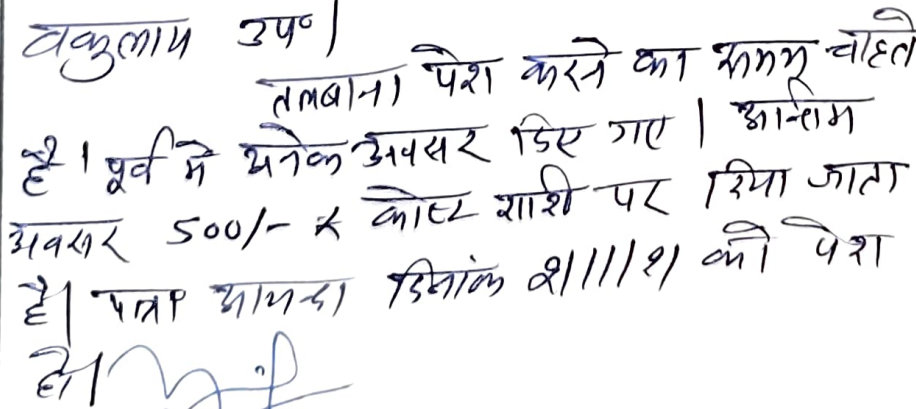 वकुलाय उप०।
तलबाना पेश करने का समय चाहते
है। पूर्व मे अनेक अवसर दिए गए। अन्तिम
अवसर 500/- रू कोस्ट राशि पर दिया जाता
है। पत्रा आयन्दा दिनांक को पेश
हो।